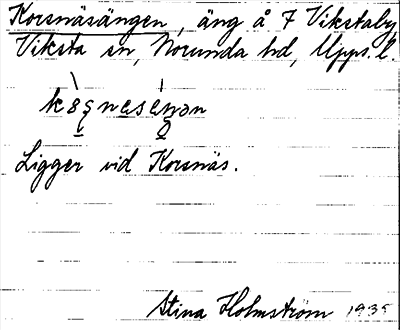 Korsnäsängen, äng å 7 Vikstaby
Viksta sn, Norunda hd, Upps. l.
Ligger vid Korsnäs.
Stina Holmström 1935